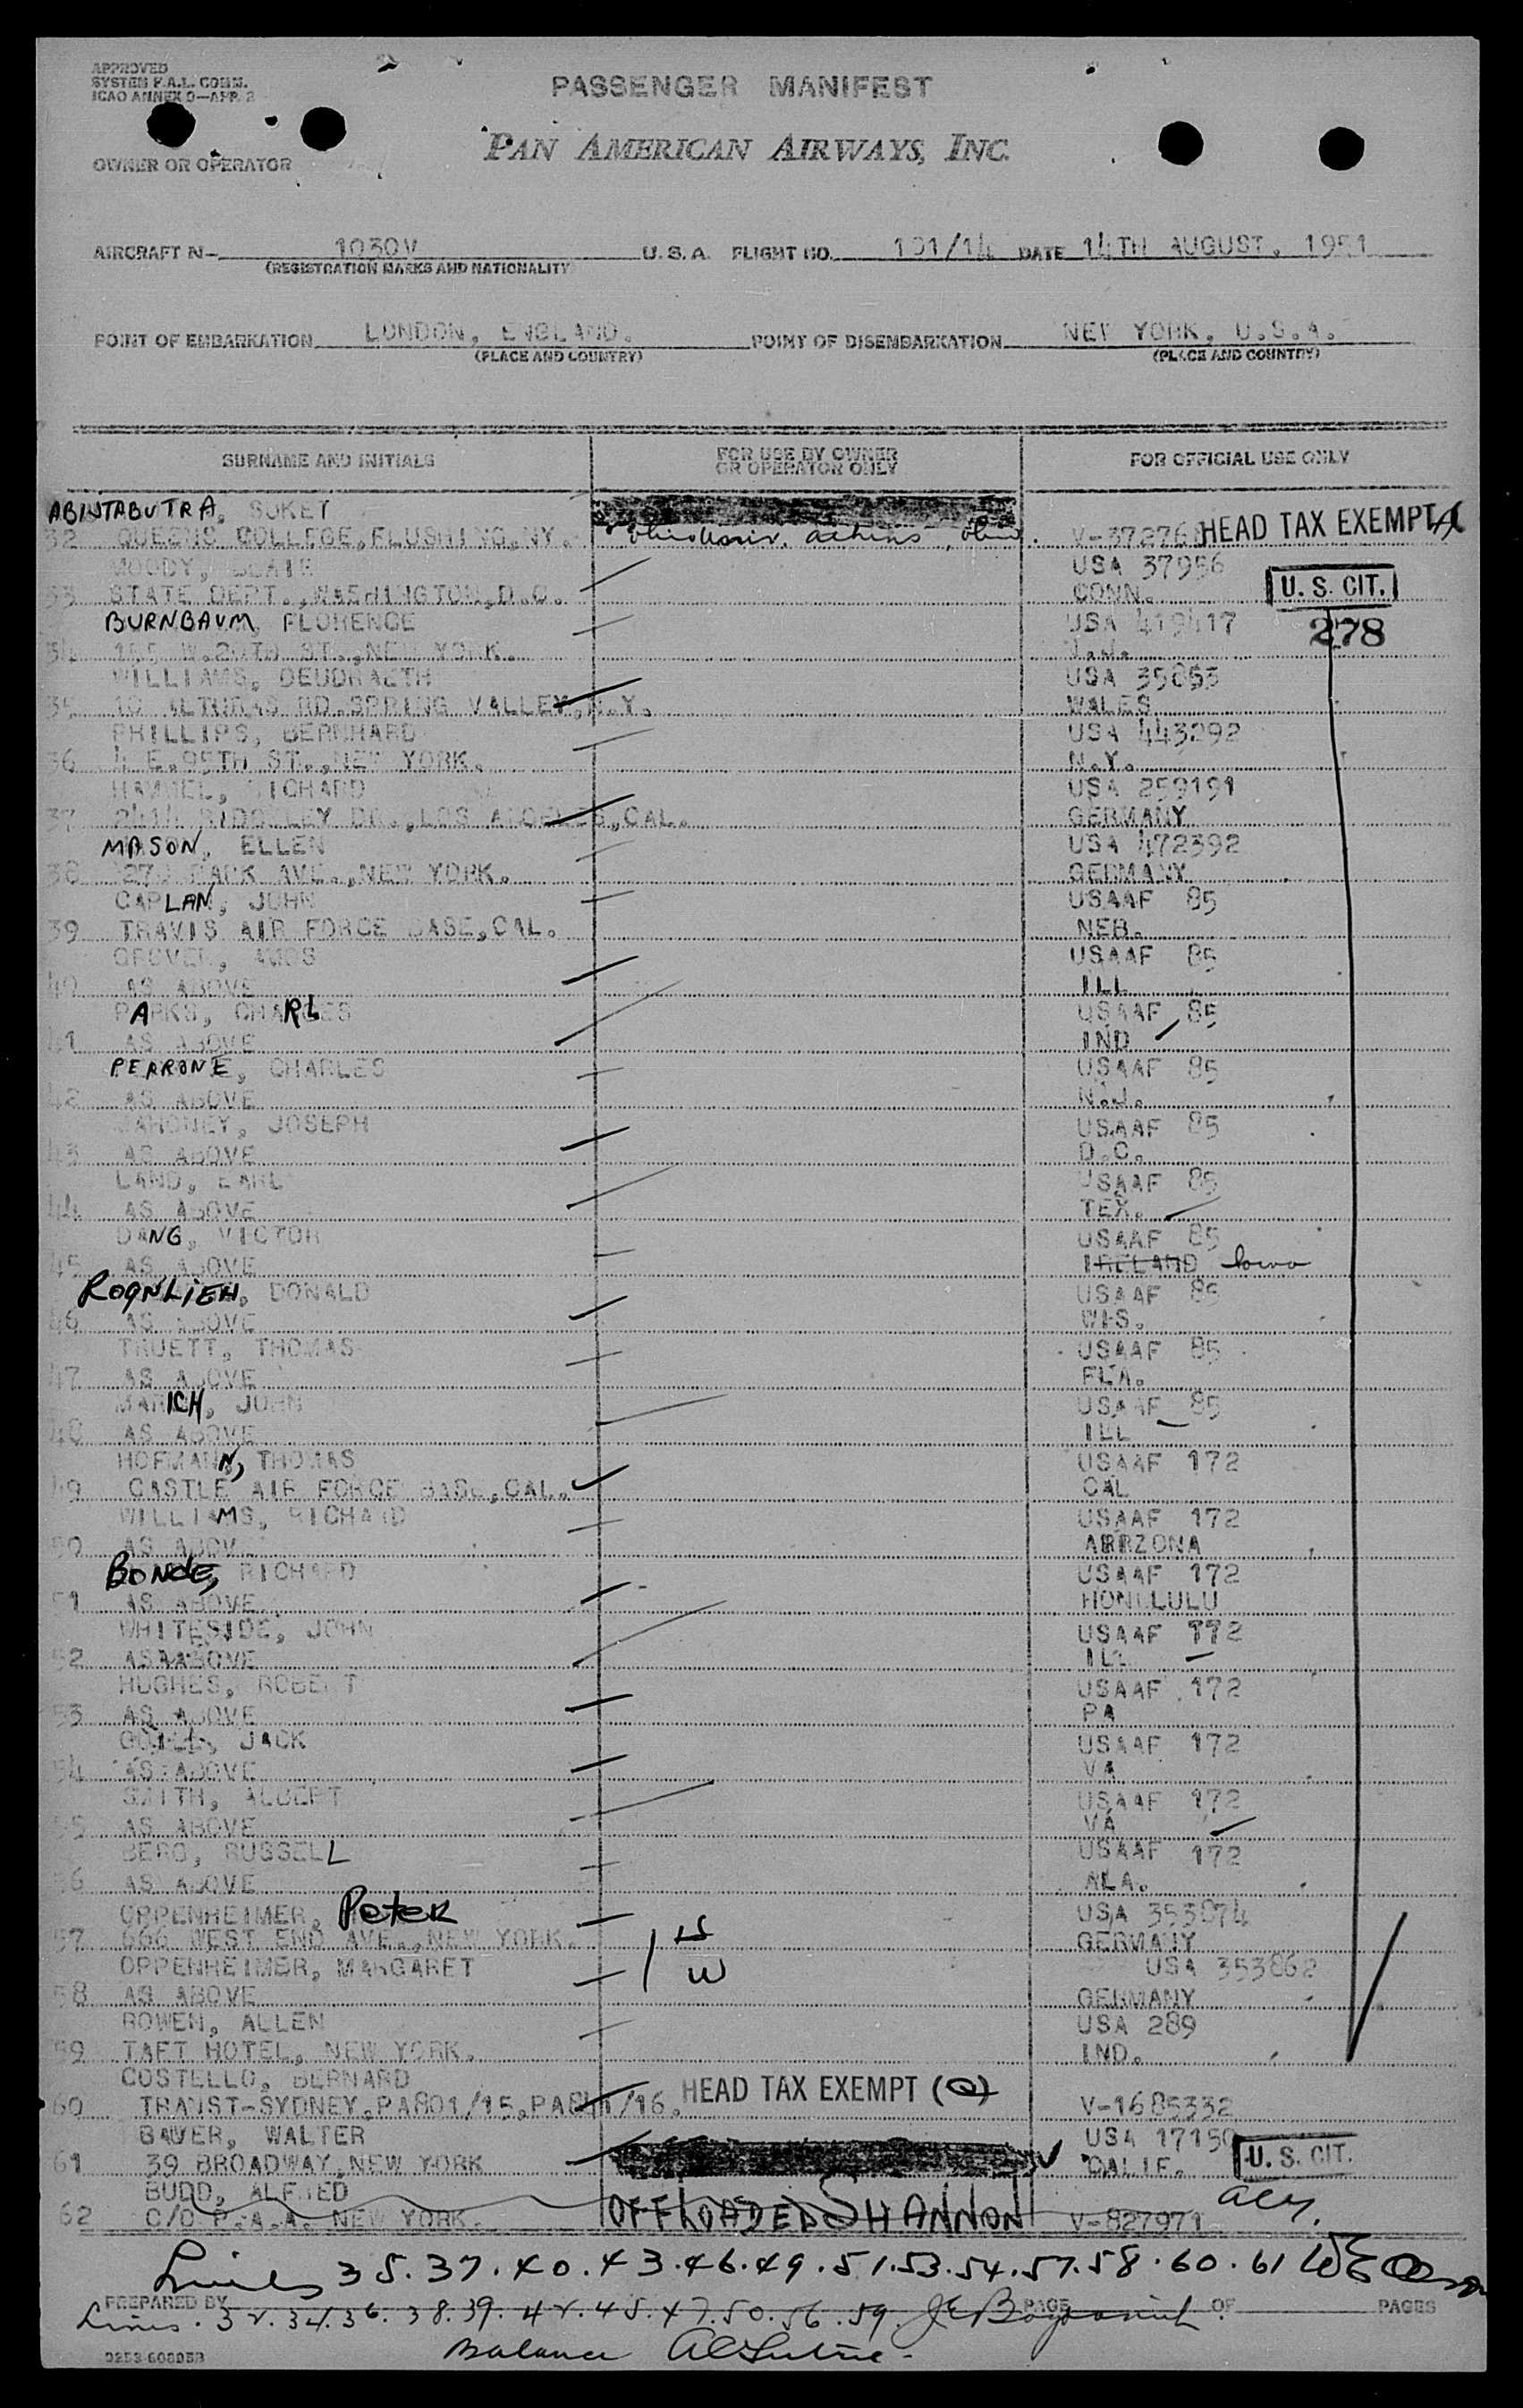 APPROVED
SYSTEM F.A.L. COMM.
ICAO ANNEX 9—APP. 2
PASSENGER MANIFEST
PAN AMERICAN AIRWAYS, INC.
OWNER OR OPERATOR
AIRCRAFT N- 1030V U.S.A. FLIGHT NO. 101/14 DATE 14TH AUGUST, 1951
(REGISTRATION MARKS AND NATIONALITY)
POINT OF EMBARKATION LONDON, ENGLAND. POINT OF DISEMBARKATION NEW YORK, U.S.A.
(PLACE AND COUNTRY) (PLACE AND COUNTRY)
SURNAME AND INITIALS FOR USE BY OWNER OR OPERATOR ONLY FOR OFFICIAL USE ONLY
ABINTABUTRA, SUKET
32 QUEENS COLLEGE, FLUSHING, NY. Ohio Univ. Athens, Ohio. V-37276 HEAD TAX EXEMPT
MOODY, BLAIR USA 37956
33 STATE DEPT., WASHINGTON, D.C. CONN. U.S. CIT.
BURNBAUM, FLORENCE USA 419417 278
34 155 W. 20TH ST., NEW YORK. N.J.
WILLIAMS, DEUDRAETH USA 35853
35 10 ALTURAS RD. SPRING VALLEY, N.Y. WALES
PHILLIPS, BERNHARD USA 443292
36 4 E. 95TH ST., NEW YORK. N.Y.
HAMMEL, RICHARD USA 259191
37 2414 RIDGELEY DR., LOS ANGELES, CAL. GERMANY
MASON, ELLEN USA 472392
38 270 PARK AVE., NEW YORK. GERMANY
CAPLAN, JOHN USAAF 85
39 TRAVIS AIR FORCE BASE, CAL. NEB.
GROVER, AMOS USAAF 85
40 AS ABOVE ILL
PARKS, CHARLES USAAF 85
41 AS ABOVE IND
PERRONE, CHARLES USAAF 85
42 AS ABOVE N.J.
MAHONEY, JOSEPH USAAF 85
43 AS ABOVE D.C.
LAND, EARL USAAF 85
44 AS ABOVE TEX.
DANG, VICTOR USAAF 85
45 AS ABOVE IRELAND Iowa
ROGNLIEN, DONALD USAAF 85
46 AS ABOVE WIS.
TRUETT, THOMAS USAAF 85
47 AS ABOVE FLA.
MARICH, JOHN USAAF 85
48 AS ABOVE ILL
HOFMANN, THOMAS USAAF 172
49 CASTLE AIR FORCE BASE, CAL. CAL
WILLIAMS, RICHARD USAAF 172
50 AS ABOV ARRZONA
BONDE, RICHARD USAAF 172
51 AS ABOVE HONOLULU
WHITESIDE, JOHN USAAF 172
52 ASAABOVE ILL
HUGHES, ROBERT USAAF 172
53 AS ABOVE PA
JACK USAAF 172
54 AS ABOVE VA
SMITH, ALBERT USAAF 172
55 AS ABOVE VA
BERG, RUSSELL USAAF 172
56 AS ABOVE ALA.
OPPENHEIMER, PETER USA 353874
57 666 WEST END AVE., NEW YORK. H GERMANY
OPPENHEIMER, MARGARET W USA 353862
58 AS ABOVE GERMANY
BOWEN, ALLEN USA 289
59 TAFT HOTEL, NEW YORK. IND.
COSTELLO, BERNARD
60 TRANST-SYDNEY, PA801/15, PA841/16. HEAD TAX EXEMPT (Q) V-1685332
BAUER, WALTER USA 17150
61 39 BROADWAY, NEW YORK CALIF. U.S. CIT.
BUDD, ALFRED
62 C/O P.A.A. NEW YORK. OFFLOADED SHANNON V-827971
Lines 35.37.40.43.46.49.51.53.54.57.58.60.61
PREPARED BY PAGE OF PAGES
Lines. 32.34.36.38.39.42.45.47.50.56.59
Balance